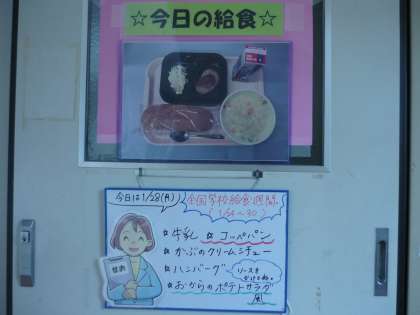 ☆今日の給食☆
今日は1/28(月)
全国学校給食週間
(1/24~30)
☆牛乳 ☆コッペパン
☆かぶのクリームシチュー
☆ハンバーグ
ソースを
かけてね。
☆おからのポテトサラダ
風